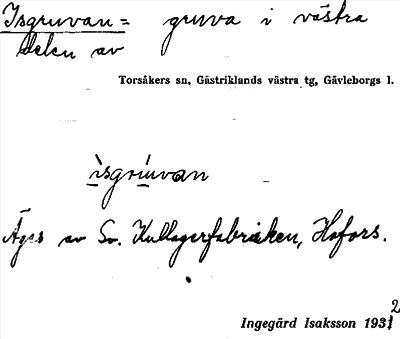 Isgruvan = gruva i västra
delen av
Torsåkers sn, Gästriklands västra tg, Gävleborgs l.
ìsgrúvan
Äges av Sv. Kullagerfabriken, Hofors.
Ingegärd Isaksson 1932